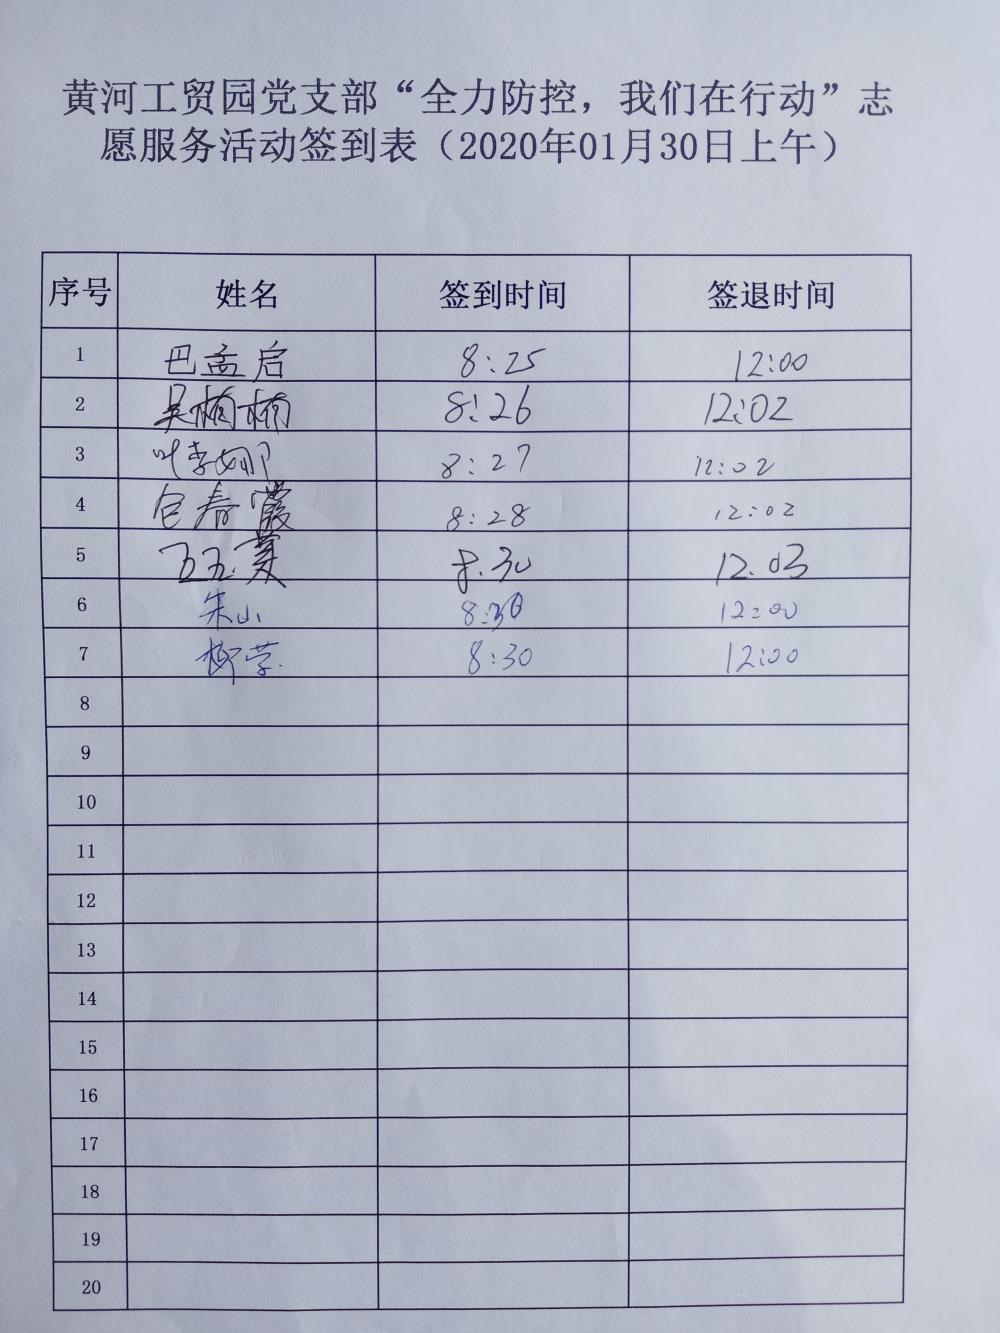 黄河工贸园党支部“全力防控，我们在行动”志
愿服务活动签到表（2020年01月30日上午）
序号 姓名 签到时间 签退时间
1 巴孟启 8:25 12:00
2 吴楠楠 8:26 12:02
3 叶李娜 8:27 12:02
4 包春霞 8:28 12:02
5 8.30 12.03
6 朱山 8:30 12:00
7 柳莹 8:30 12:00
8
9
10
11
12
13
14
15
16
17
18
19
20